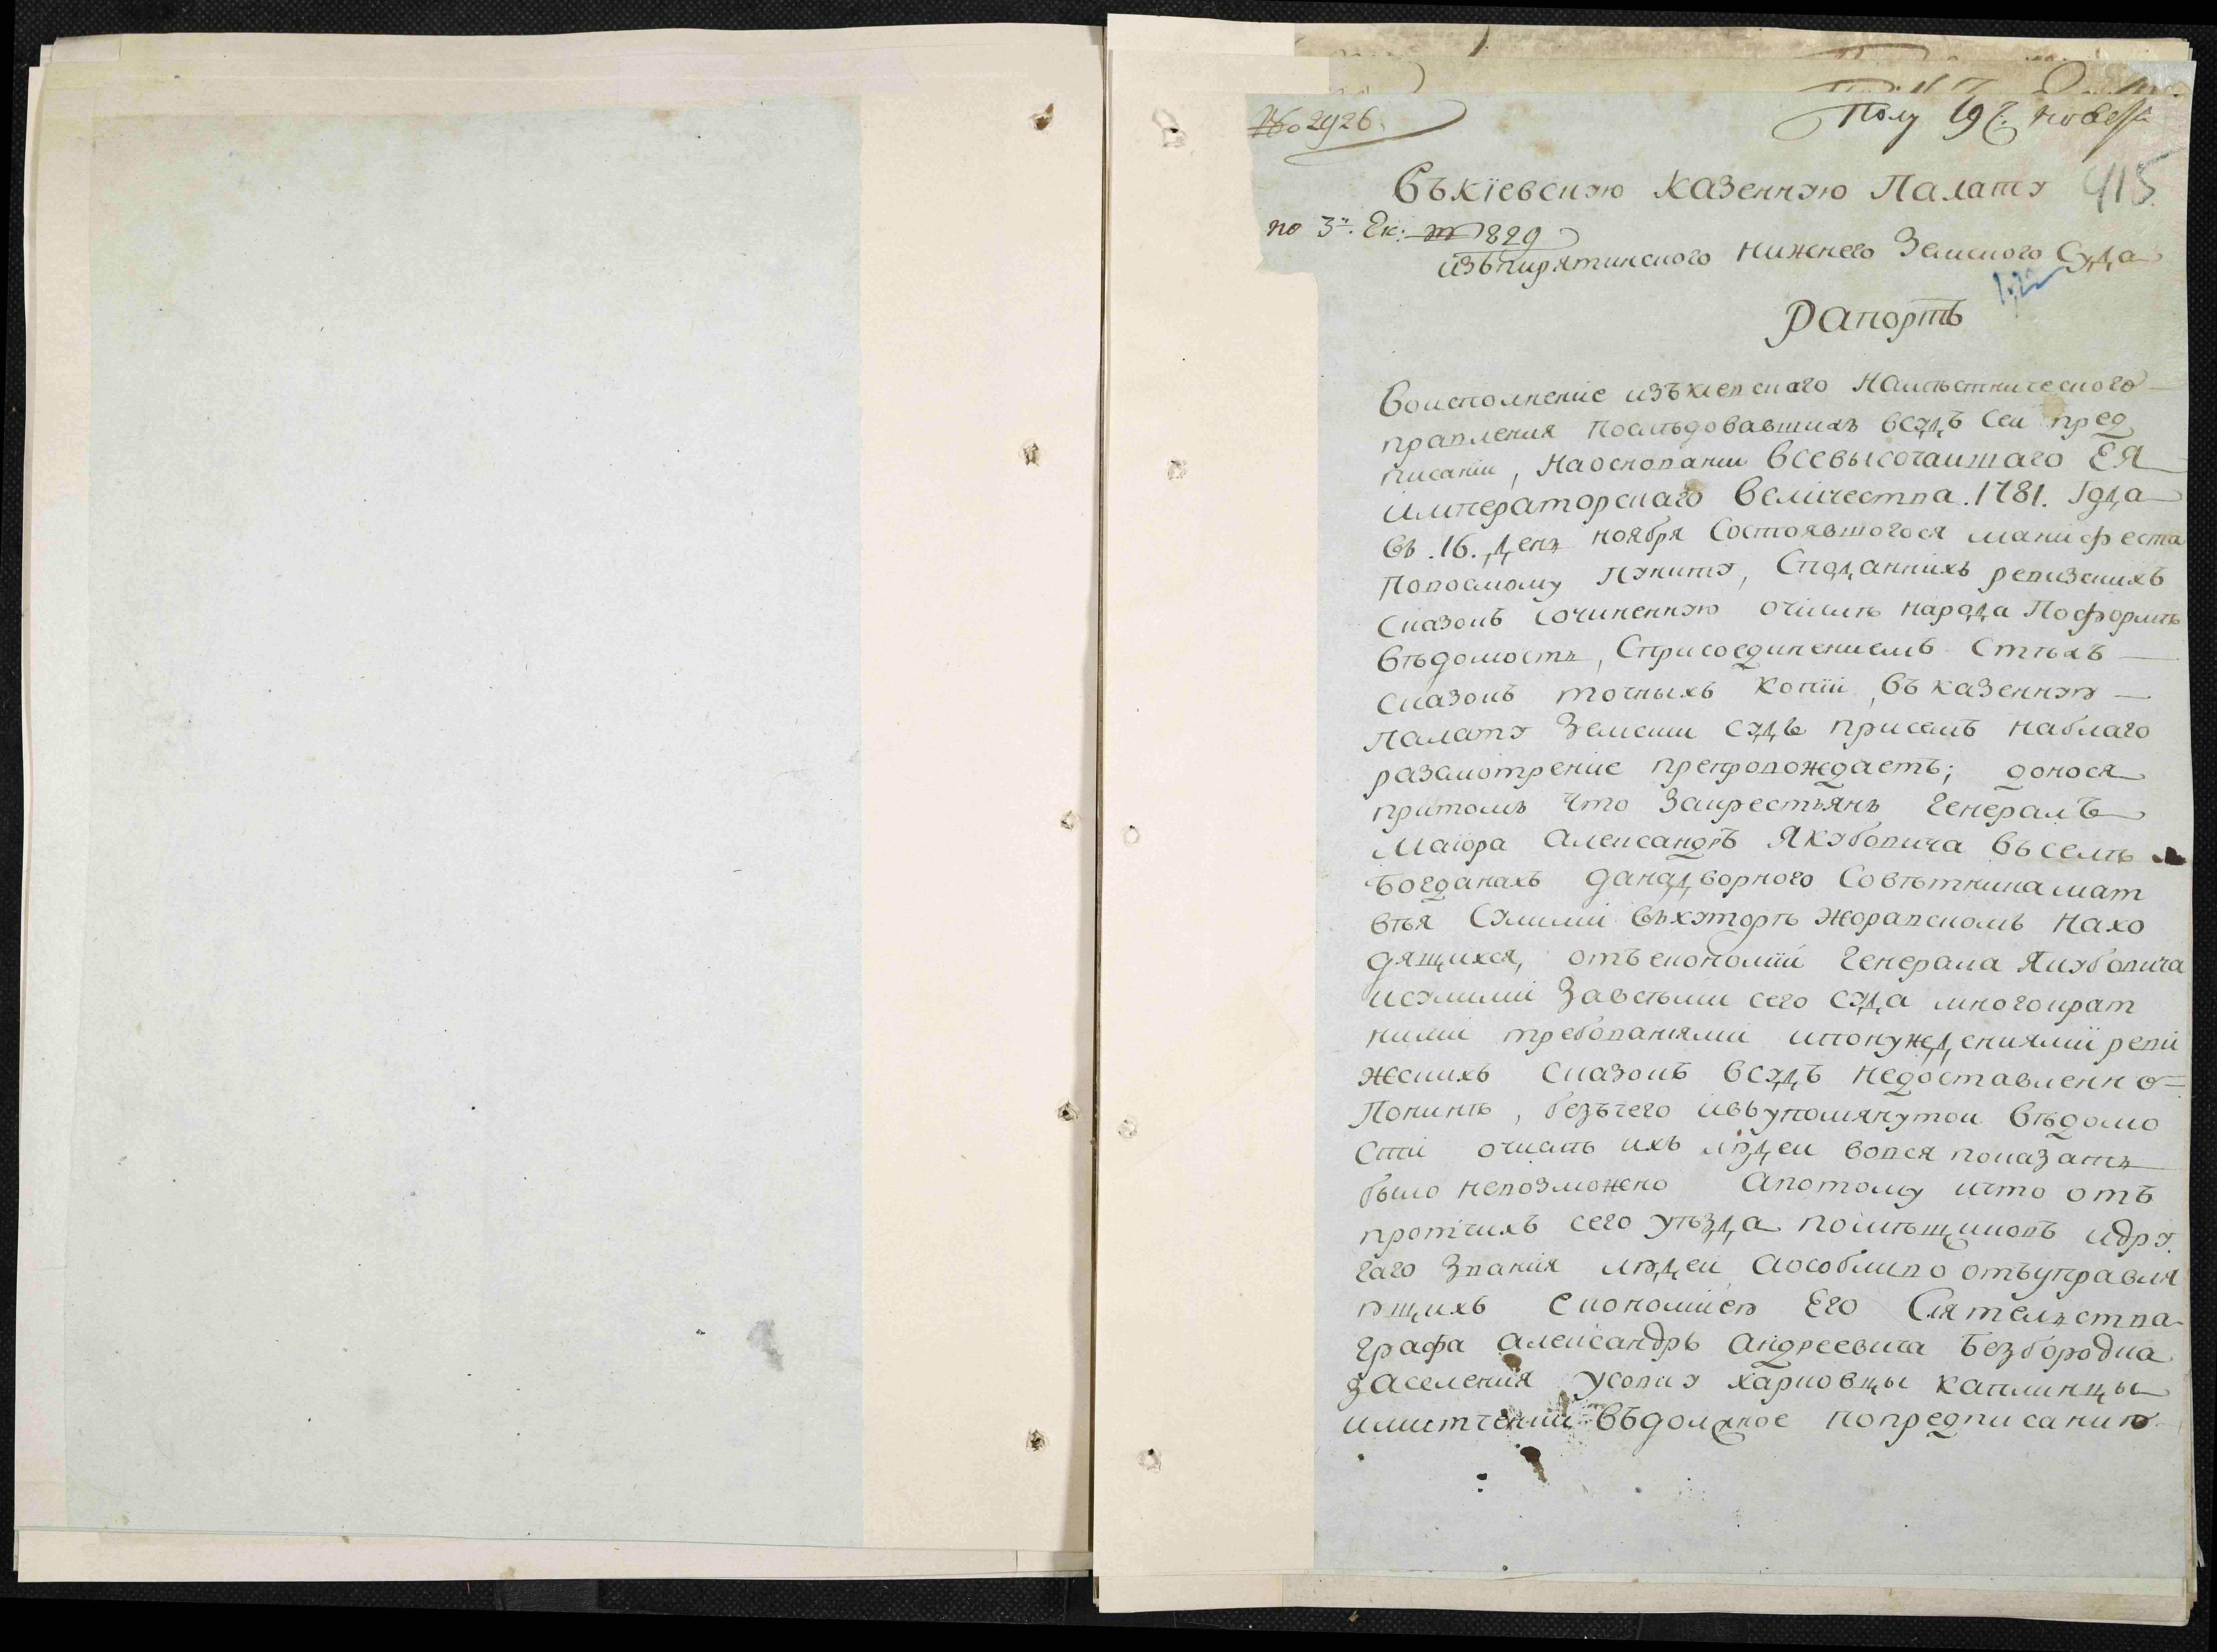 № 2926.
Полу 19 г. новем
Въ кіевскую казенную Палату
415
по 3й. Ек: 829
изъ пирятинского нижнего Земского Суда
422
Рапортъ
Воисполнение изъ киевскаго Намѣстнического
правления последовавшихъ всудъ сеи пред
писании, на основании всевысочаишаго ЕЯ
императорскаго величества. 1781. года
въ. 16. день ноября состоявшогося манифеста
поповоému пункту, Споданнихъ ревизскихъ
сказокъ сочиненную очислѣ народа Поформѣ
вѣдомость, Сприсоединениемъ Стѣхъ
сказокъ точныхъ копіи въ казенную
палату Земскии судъ присемъ наблаго
разсмотрение препровождаетъ; донося
притомъ что закрестьянъ генералъ
маіора александръ Якубовича въ селѣ
Богданахъ данадворного Совѣтника мат
вѣя Сулими въхуторѣ жоравскомъ нахо
дящихся, отъ економіи генерала Якубовича
исулими завсѣми сего суда многократ
ними требованіями ипонуждениямирепи
жскихъ сказокъ всудъ недоставленно
Понинѣ, безъчего ивъупомянутои вѣдомо
сти очислѣ ихъ людеи вовся показать
было невозможно Апотому ичто отъ
протчихъ сего уѣзда помѣщиковъ идру
гаго звания людеи аособливо отъуправля
ющихъ економиею Его Сіятельства
графа александръ андреевича Безбородка
заселения усовку харковцы каплинцы
имитченки въдолжное попредписанию